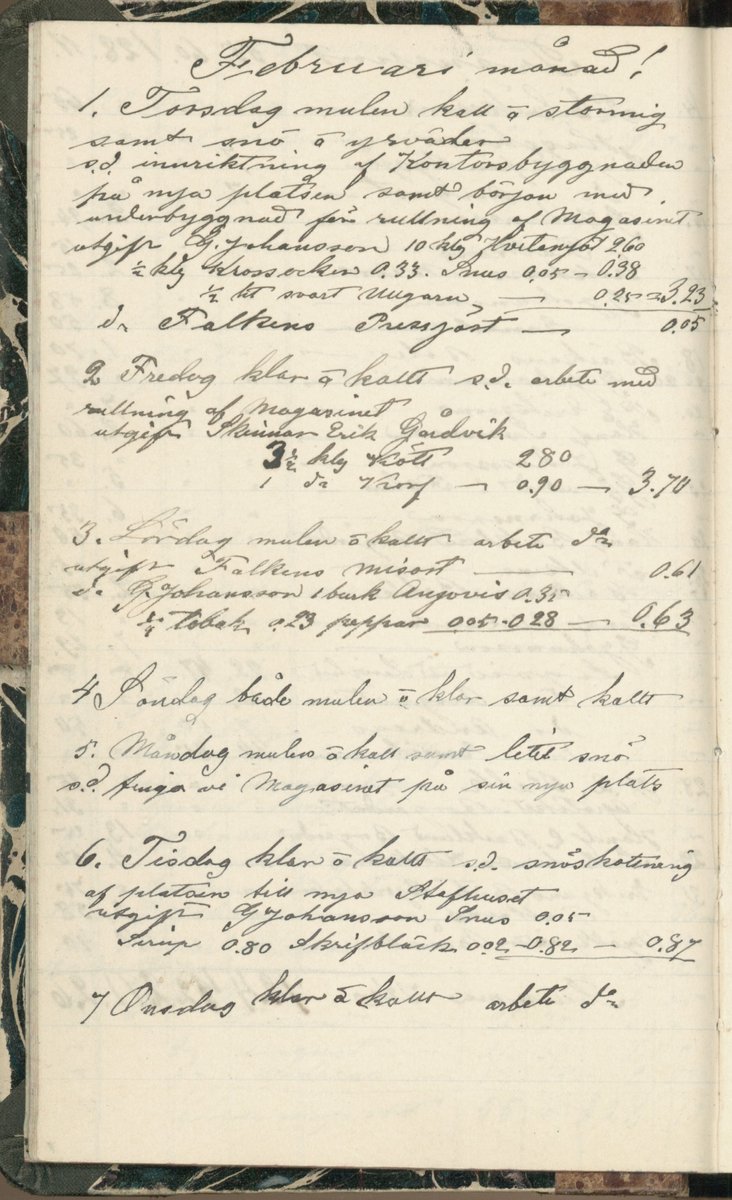 Februari månad!
1. Torsdag mulen kall å stormig
samt snö å yrväder
s.d. inriktning af Kontorsbyggnaden
på nya platsen samt början med
underbyggnad för rullning af Magasinet
utgift G. Johansson 10 klg Hvetemjöl 2,60
½ klg Krossocker 0.33. Snus 0.05 – 0.38
½ kt svart Ungarn — 0.25 = 3.23
do Falkens Pressjäst — 0.05
2 Fredag klar å kallt s.d. arbete med
rullning af Magasinet
utgift Skinnar Erik Gårdvik
3½ klg Kött 280
1 do Korf — 0.90 — 3.70
3. Lördag mulen å kallt arbete do
utgift Falkens misost — 0.61
do G Johansson 1 burk Angovis 0.35
tobak 0.23 peppar 0.05 - 0.28 — 0.63
4 Söndag både mulen å klar samt kallt
5. Måndag mulen å kall samt litet snö
s.d. finga vi Magasinet på sin nya plats
6. Tisdag klar å kallt s.d. snöskottning
af platsen till nya Stafhuset
utgift G Johansson Snus 0.05
Sirup 0.80 Skrifbläck 0.02 - 0.82 — 0.87
7 Onsdag klar å kallt arbete do